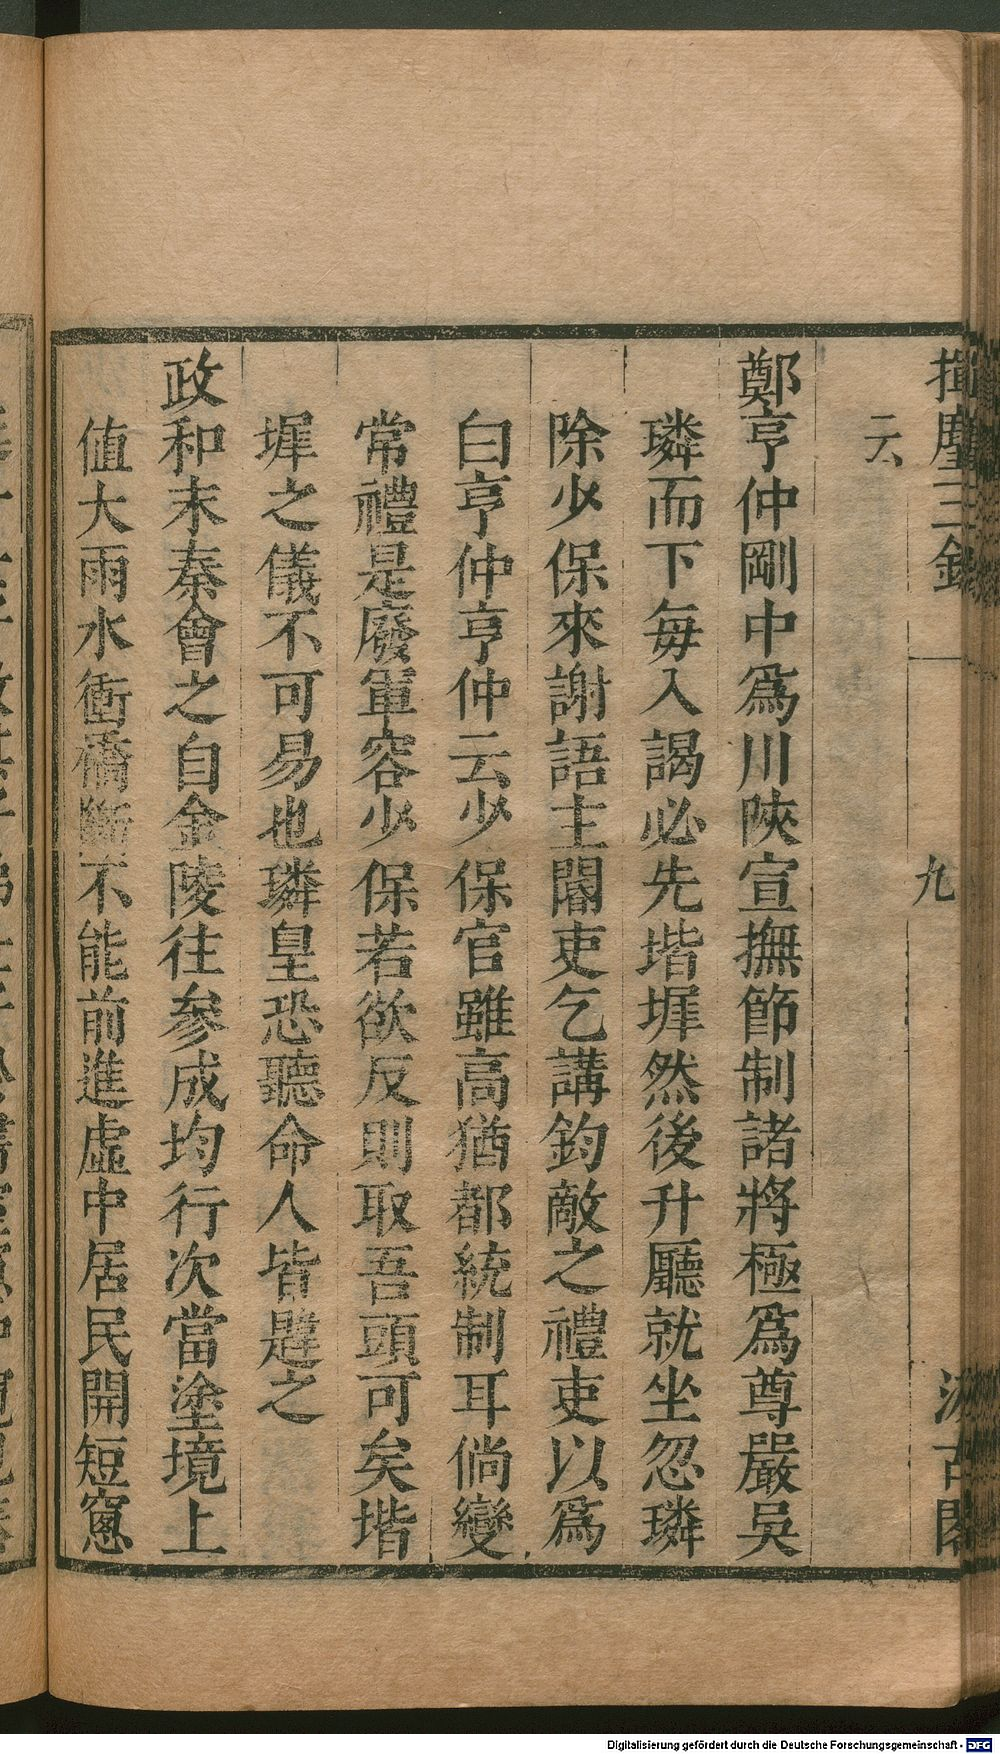 揮麈三錄
九
汲古閣
云
鄭亨仲剛中爲川陝宣撫節制諸將極爲尊嚴吳
璘而下每入謁必先堦墀然後升廳就坐忽璘
除少保來謝語主閽吏乞講鈞敵之禮吏以爲
白亨仲亨仲云少保官雖高猶都統制耳倘變
常禮是廢軍容少保若欲反則取吾頭可矣堦
墀之儀不可易也璘皇恐聽命人皆韙之
政和末秦會之自金陵往參成均行次當塗境上
値大雨水衝橋斷不能前進虛中居民開短窻
Digitalisierung gefördert durch die Deutsche Forschungsgemeinschaft - DFG